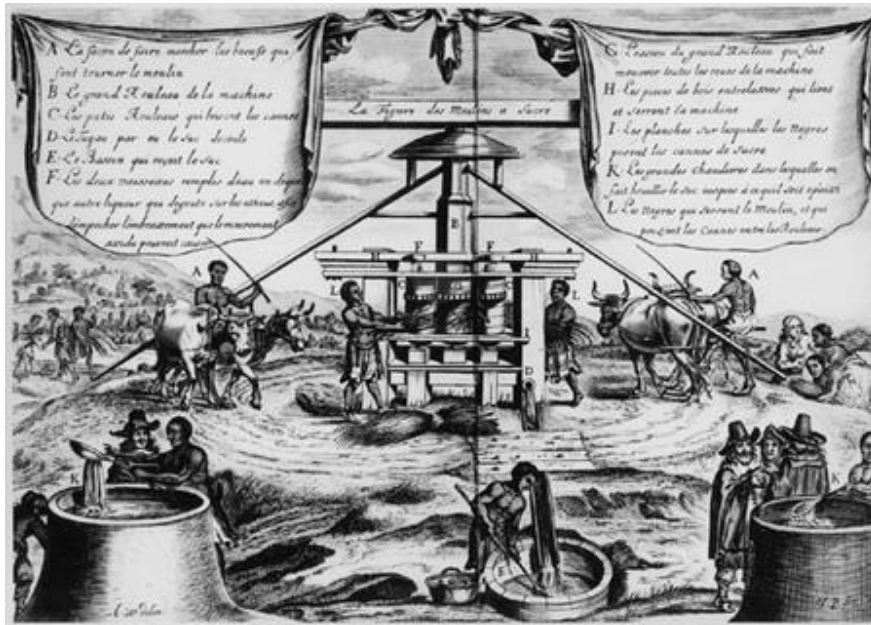 A La façon de faire marcher les boeufs qui
font tourner le moulin
B Le grand Rouleau de la machine
C Les petis Rouleaux qui brisent les cannes
D Le Tuyau par ou le suc decoule
E Le Bassin qui reçoit le suc
F Les deux remples deau ou de
que autre liqueur qui degoute sur les
lembrasement que le mouvement
assidu pouroit causer
La Figure des Moulins a Sucre
G du grand Rouleau qui fait
mouvoir toutes les roues de la machine
H Les pieces de bois entrelassees qui lient
et serrent la machine
I Les planches sur lesquelles les Negres
posent les cannes de sucre
K Les grandes Chaudieres dans lesquelles on
fait bouillir le suc jusques a ce quil soit
L Les Negres qui servent le Moulin, et qui
les Cannes entre les Rouleaux
B
F F
A A
L L
C C
I
D
K K
E